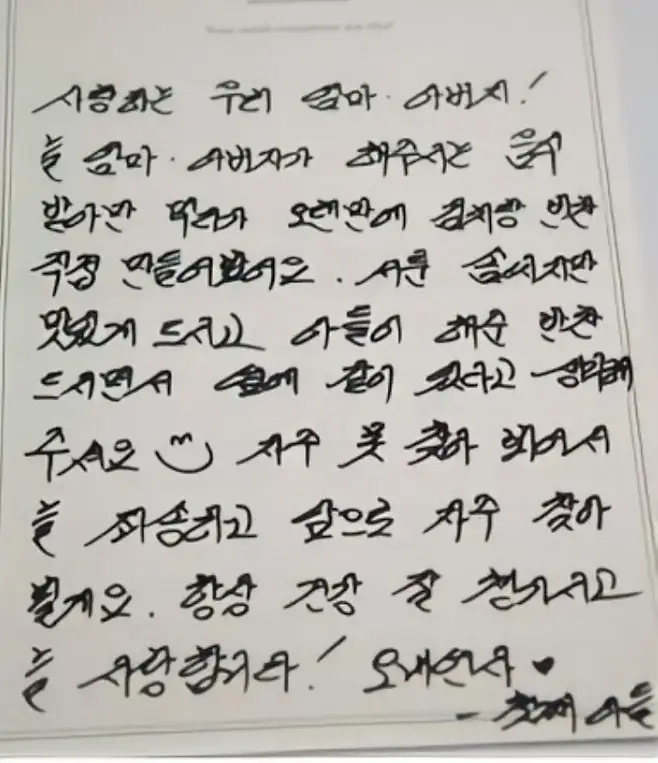 사랑하는 우리 엄마·아버지!
늘 엄마·아버지가 해주시는 음식
받아만 먹다가 오랜만에 김치랑 반찬
직접 만들어봤어요. 서툰 솜씨지만
맛있게 드시고 아들이 해준 반찬
드시면서 옆에 같이 있다고 생각해
주세요 자주 못 찾아 봬어서
늘 죄송하고 앞으로 자주 찾아
뵐게요. 항상 건강 잘 챙기시고
늘 사랑합니다! 오래언사 ♥
- 첫째 아들